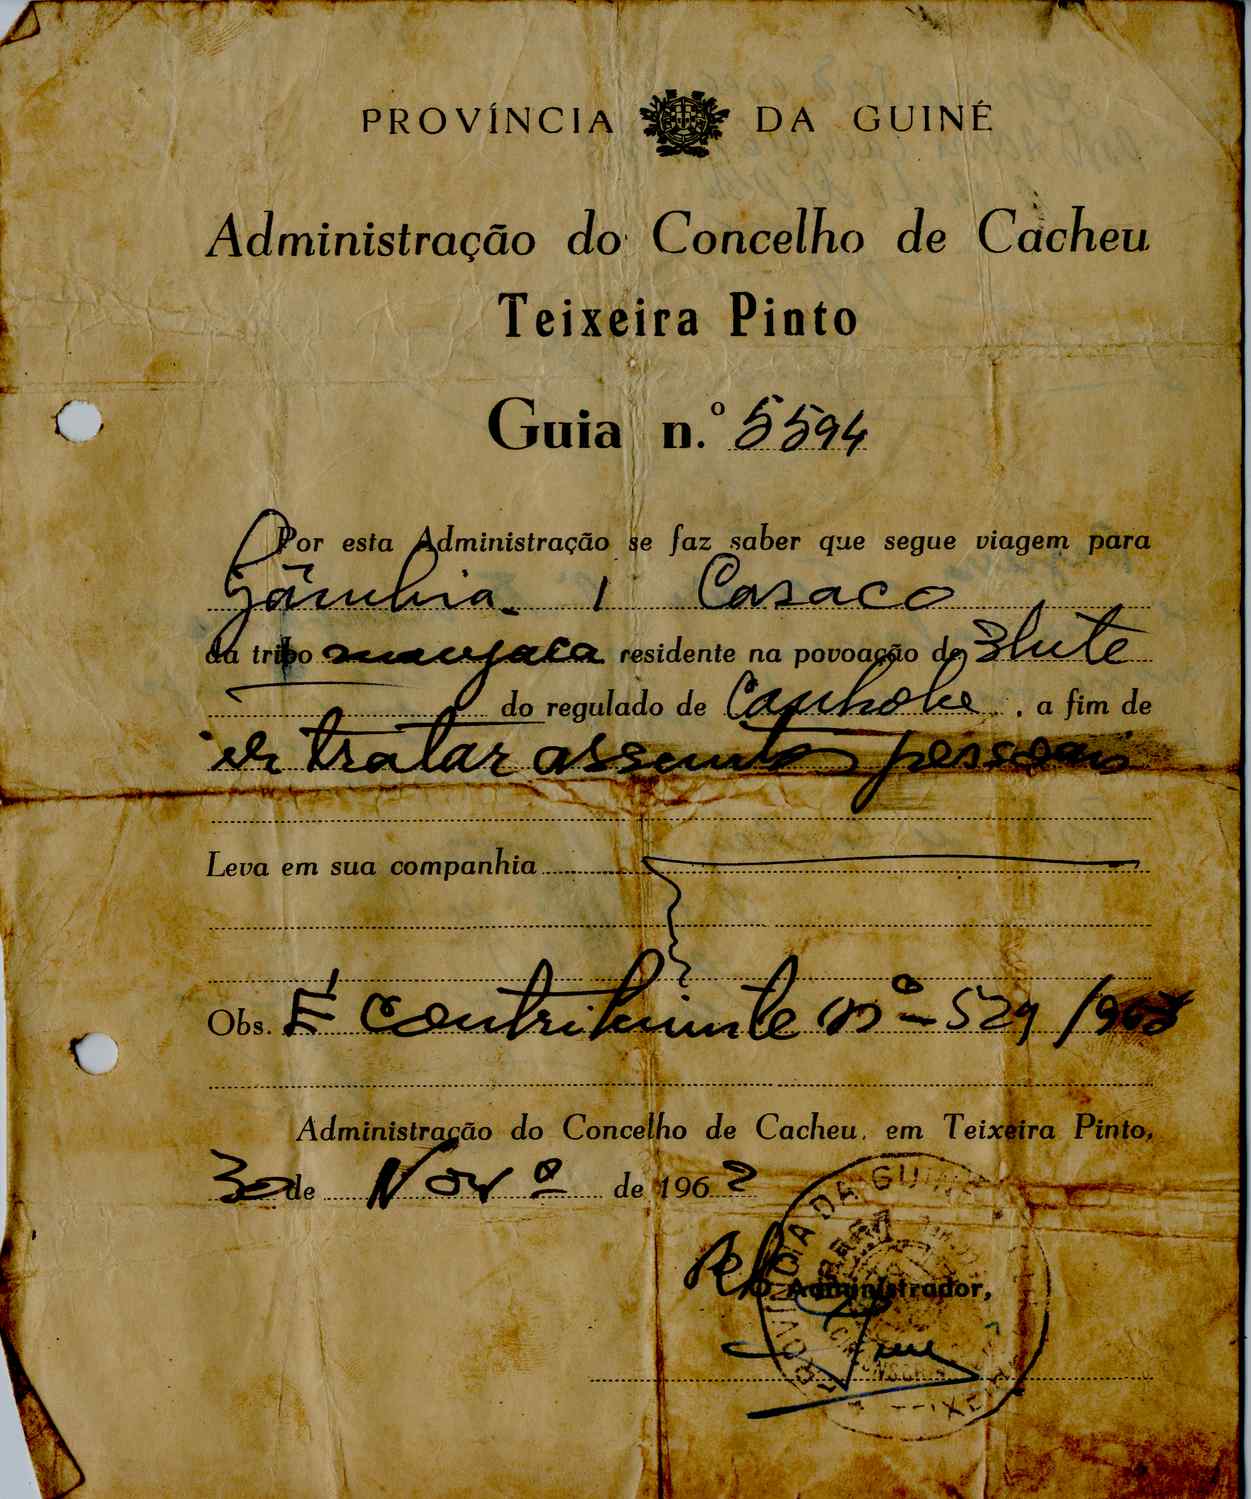 PROVÍNCIA DA GUINÉ
Administração do Concelho de Cacheu
Teixeira Pinto
Guia n.º 5594
Por esta Administração se faz saber que segue viagem para
Gâmbia. 1 Casaco
da tribo manjaca residente na povoação de
do regulado de Canhobe, a fim de
ir tratar assuntos pessoais
Leva em sua companhia
Obs. É contribuinte nº 529/962
Administração do Concelho de Cacheu, em Teixeira Pinto,
30 de Novº de 1962
Pelo Administrador,
PROVINCIA DA GUINÉ